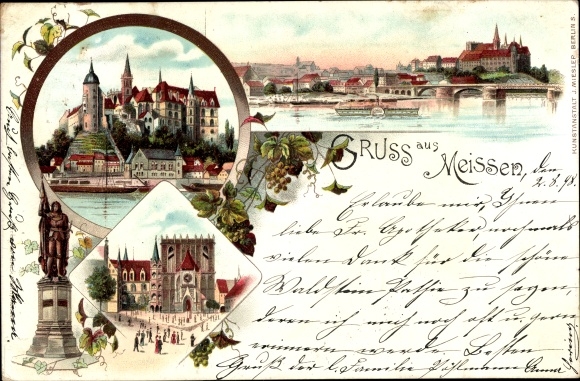 GRUSS aus
Meissen, den
2.8.98.
Erlaube mir, Ihnen
liebe Fr. Apotheker, nochmals
vielen Dank für die schöne
Waldstein Partie zu sagen,
deren ich mich noch oft u. gern
erinnern werde. Besten
Gruß der l. Familie Pöhlmann Anna
KUNSTANSTALT J. MIESLER, BERLIN S.